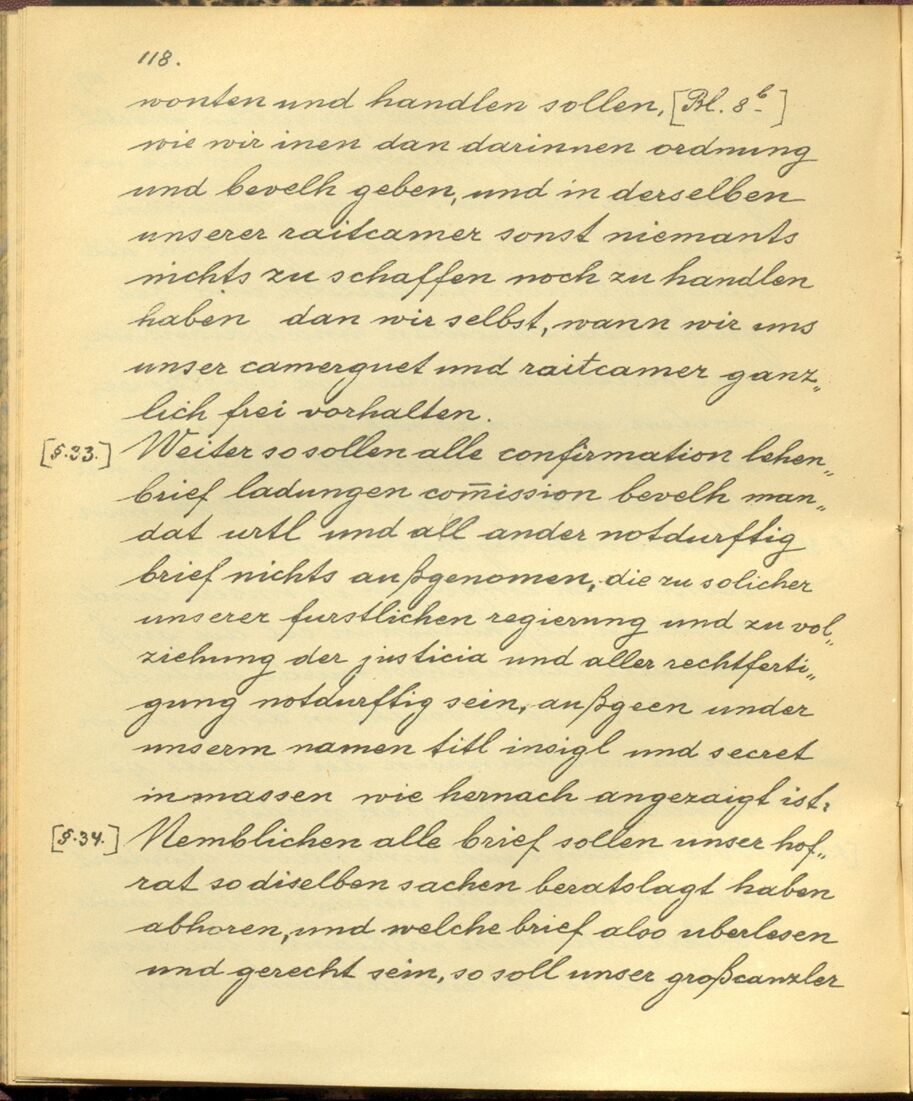 118.
wonten und handlen sollen, [Bl. 8b]
wie wir inen dan darinnen ordnung
und bevelh geben, und in derselben
unserer raitcamer sonst niemants
nichts zu schaffen noch zu handlen
haben dan wir selbst, wann wir uns
unser camerguet und raitcamer ganz„
lich frei vorhalten.
[§.33.] Weiter so sollen alle confirmation lehen„
brief ladungen com̄ission bevelh man„
dat urtl und all ander notdurftig
brief nichts außgenomen, die zu solicher
unserer furstlichen regierung und zu vol„
ziehung der justicia und aller rechtferti„
gung notdurftig sein, außgeen under
unserm namen titl insigl und secret
inmassen wie hernach angezaigt ist:
[§.34.] Nemblichen alle brief sollen unser hof„
rat so diselben sachen beratslagt haben
abhoren, und welche brief also uberlesen
und gerecht sein, so soll unser großcanzler